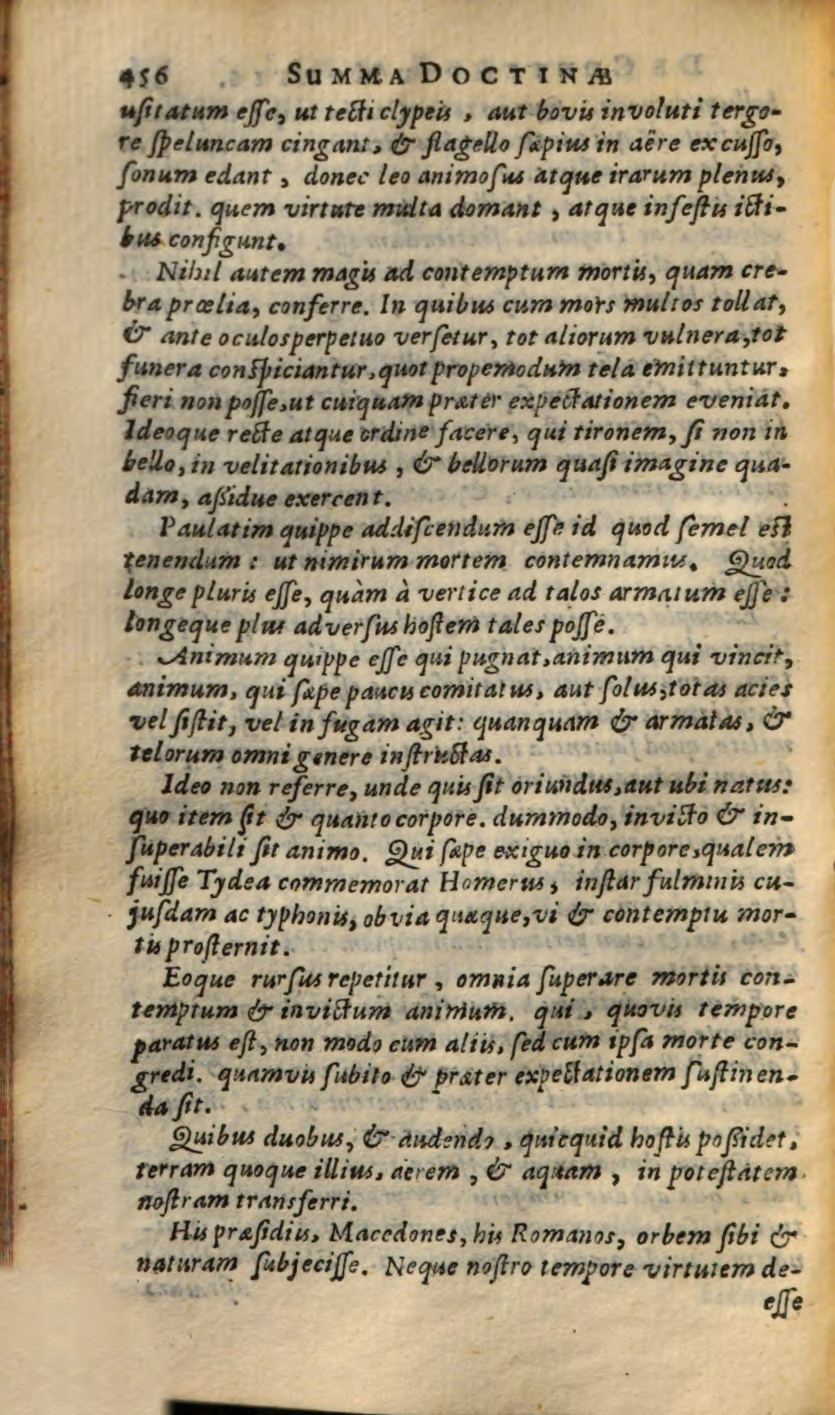 456 SUMMA DOCTINÆ
usitatum esse, ut tecti clypeis, aut bovis involuti tergo-
re speluncam cingant, & flagello sæpius in aëre excusso,
sonum edant, donec leo animosus atque irarum plenus,
prodit. quem virtute multa domant, atque infestis icti-
bus configunt.
Nihil autem magis ad contemptum mortis, quam cre-
bra prœlia, conferre. In quibus cum mors multos tollat,
& ante oculos perpetuo versetur, tot aliorum vulnera, tot
funera conspiciantur, quot propemodum tela emittuntur,
fieri non posse, ut cuiquam præter expectationem eveniat.
Ideoque recte atque ordine facere, qui tironem, si non in
bello, in velitationibus, & bellorum quasi imagine qua-
dam, assidue exercent.
Paulatim quippe addiscendum esse id quod semel est
tenendum: ut nimirum mortem contemnamus. Quod
longe pluris esse, quàm à vertice ad talos armatum esse:
longeque plus adversus hostem tales posse.
Animum quippe esse qui pugnat, animum qui vincit,
animum, qui sæpe paucis comitatus, aut solus, totas acies
vel sistit, vel in fugam agit: quanquam & armatas, &
telorum omni genere instructas.
Ideo non referre, unde quis sit oriundus, aut ubi natus:
quo item sit & quanto corpore. dummodo, invicto & in-
superabili sit animo. Qui sæpe exiguo in corpore, qualem
fuisse Tydea commemorat Homerus, instar fulminis cu-
jusdam ac typhonis, obvia quæque, vi & contemptu mor-
tis prosternit.
Eoque rursus repetitur, omnia superare mortis con-
temptum & invictum animum. qui, quovis tempore
paratus est, non modo cum aliis, sed cum ipsa morte con-
gredi. quamvis subito & præter expectationem sustinen-
da sit.
Quibus duobus, & audendo, quicquid hostis possidet,
terram quoque illius, aerem, & aquam, in potestatem
nostram transferri.
His præsidiis, Macedones, his Romanos, orbem sibi &
naturam subjecisse. Neque nostro tempore virtutem de-
esse